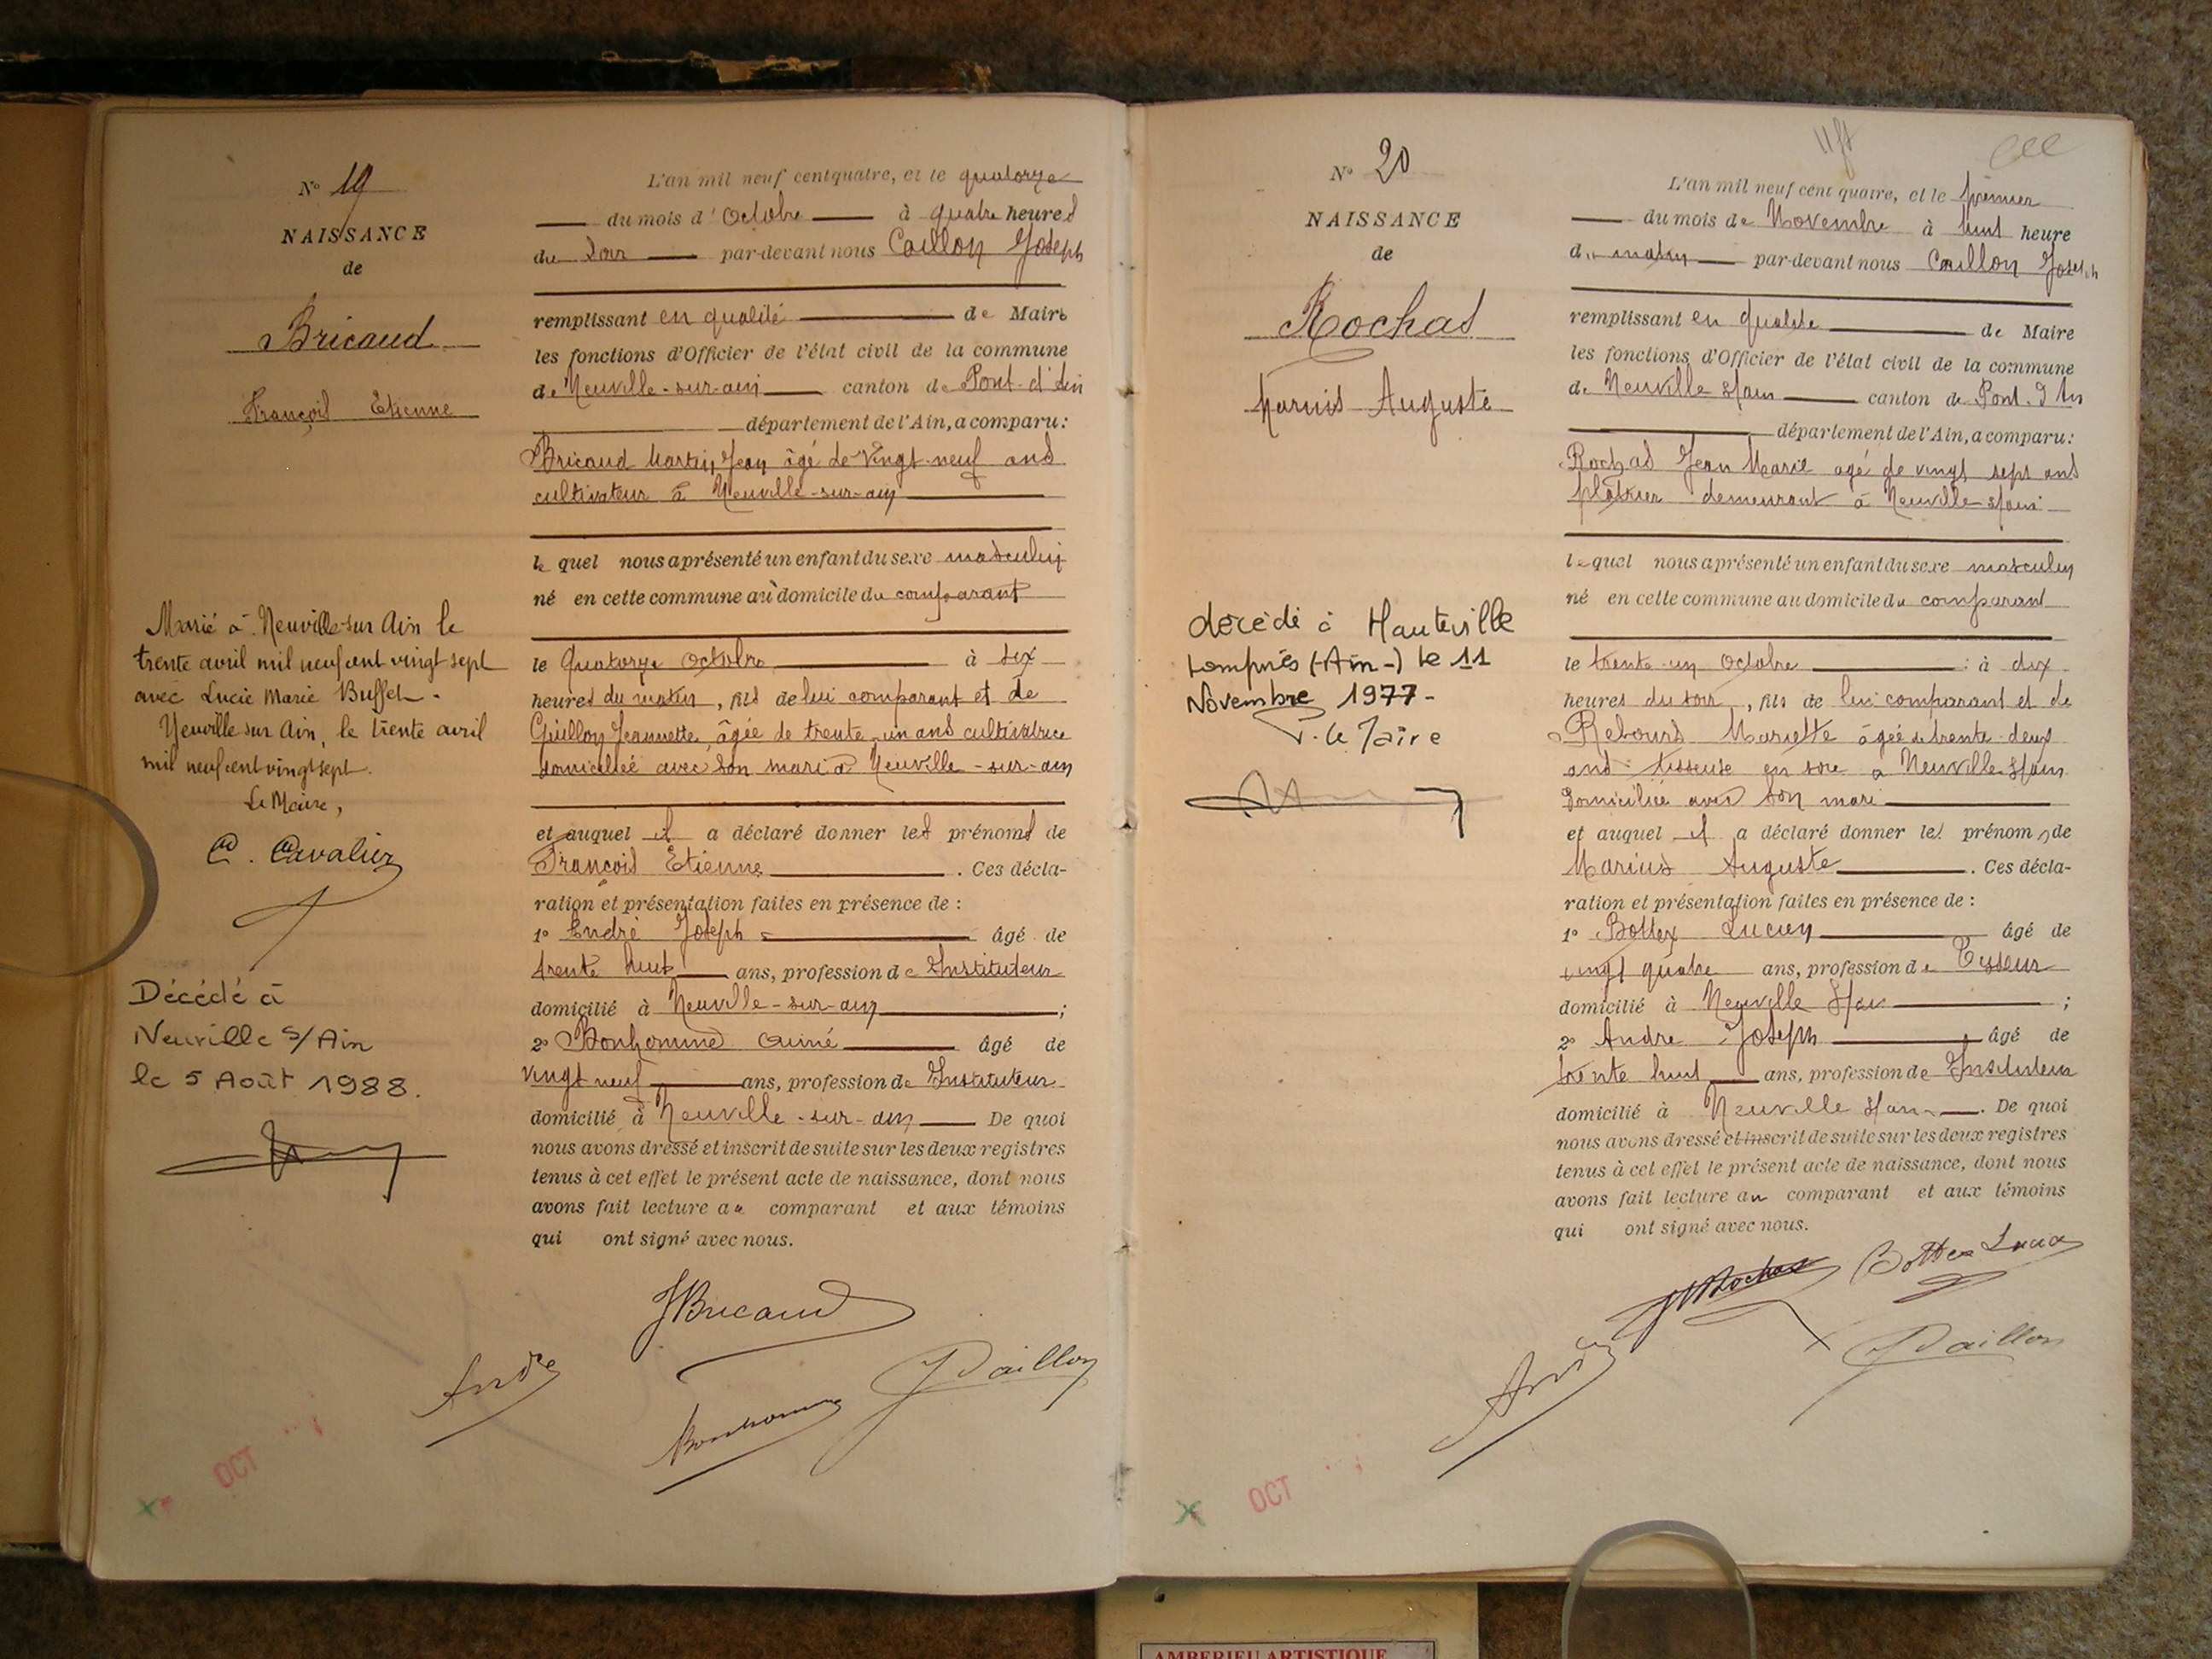 N° 19
NAISSANCE
de
Bricaud
François Etienne
Marié à Neuville-sur Ain le
trente avril mil neuf cent vingt sept
avec Lucie Marie Buffet.
Neuville sur Ain, le trente avril
mil neuf cent vingt sept.
Le Maire,
C. Cavalier
Décédé à
Neuville s/Ain
le 5 Août 1988.
L'an mil neuf cent quatre, et le quatorze
du mois d'Octobre à quatre heures
du soir par-devant nous Caillon Joseph
remplissant en qualité de Maire
les fonctions d'Officier de l'état civil de la commune
de Neuville-sur-ain canton de Pont-d'Ain
département de l'Ain, a comparu:
Bricaud Martin Jean âgé de vingt-neuf ans
cultivateur à Neuville-sur-ain
lequel nous a présenté un enfant du sexe masculin
né en cette commune au domicile du comparant
le quatorze octobre à six
heures du matin, fils de lui comparant et de
Guillon Jeannette, âgée de trente-un ans cultivatrice
domiciliée avec son mari à Neuville-sur-ain
et auquel il a déclaré donner les prénoms de
François Etienne. Ces décla-
ration et présentation faites en présence de :
1° André Joseph âgé de
trente huit ans, profession de Instituteur
domicilié à Neuville-sur-ain ;
2° Bonhomme Aimé âgé de
vingt neuf ans, profession de Instituteur
domicilié à Neuville-sur-ain De quoi
nous avons dressé et inscrit de suite sur les deux registres
tenus à cet effet le présent acte de naissance, dont nous
avons fait lecture au comparant et aux témoins
qui ont signé avec nous.
JBricaud
André
Bonhomme
JCaillon
OCT
N° 20
NAISSANCE
de
Rochas
Marius Auguste
décédé à Hauteville
Lompnès (Ain-) le 11
Novembre 1977-
P. le Maire
L'an mil neuf cent quatre, et le premier
du mois de Novembre à huit heure
du matin par-devant nous Caillon Joseph
remplissant en qualité de Maire
les fonctions d'Officier de l'état civil de la commune
de Neuville s/ain canton de Pont-d'Ain
département de l'Ain, a comparu:
Rochas Jean Marie agé de vingt sept ans
plâtrier demeurant à Neuville s/ain
lequel nous a présenté un enfant du sexe masculin
né en cette commune au domicile du comparant
le trente-un Octobre à dix
heures du soir, fils de lui comparant et de
Rebours Mariette âgée de trente-deux
ans tisseuse en soie à Neuville s/ain
domiciliée avec son mari
et auquel il a déclaré donner les prénoms de
Marius Auguste. Ces décla-
ration et présentation faites en présence de :
1° Bottex Lucien âgé de
vingt quatre ans, profession de Tisseur
domicilié à Neuville s/ain ;
2° Andre Joseph âgé de
trente huit ans, profession de Instituteur
domicilié à Neuville s/ain. De quoi
nous avons dressé et inscrit de suite sur les deux registres
tenus à cet effet le présent acte de naissance, dont nous
avons fait lecture au comparant et aux témoins
qui ont signé avec nous.
Rochas
Bottex
André
JCaillon
OCT
AMBERIEU ARTISTIQUE